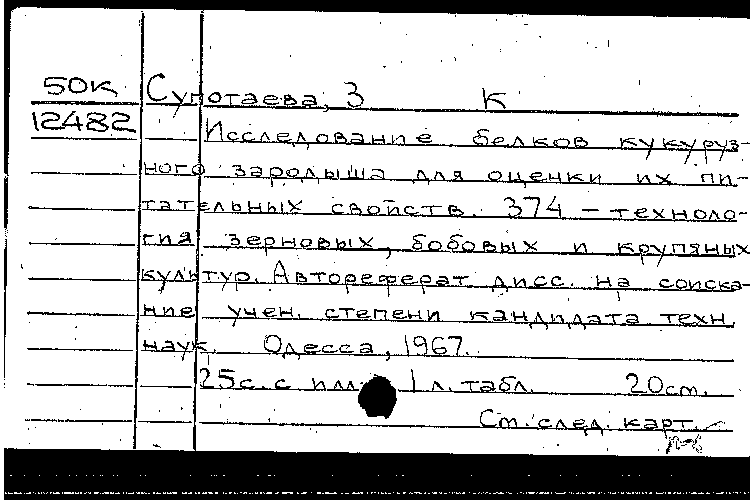 50К Супотаева, З К
12482 Исследование белков кукуруз-
ного зародыша для оценки их пи-
тательных свойств. 374 – техноло-
гия зерновых, бобовых и крупяных
культур. Автореферат дисс. на соиска-
ние учен. степени кандидата техн.
наук. Одесса, 1967.
25с. с илл. 1 л. табл. 20см.
См. след. карт.